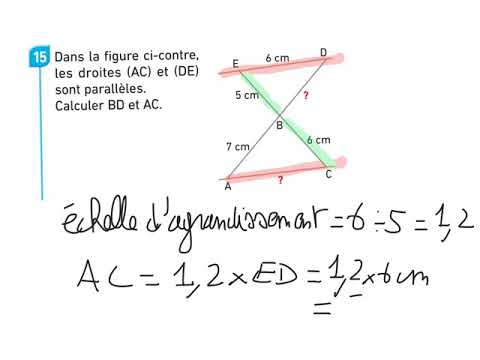 15 Dans la figure ci-contre,
les droites (AC) et (DE)
sont parallèles.
Calculer BD et AC.
E 6 cm D
5 cm ?
B
7 cm 6 cm
A ? C
échelle d'agrandissement = 6 ÷ 5 = 1,2
AC = 1,2 × ED = 1,2 × 6 cm
=